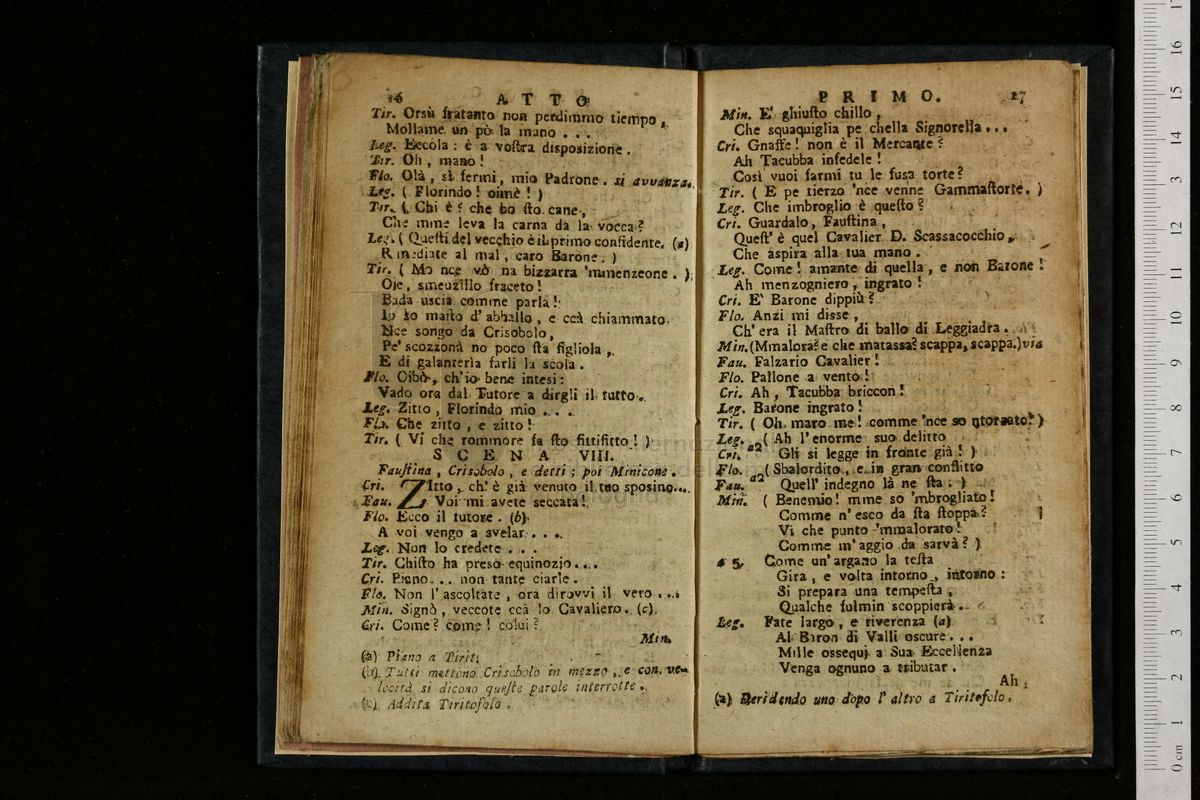 16 ATTO
Tir. Orsù fratanto non perdimmo tiempo,
Mollame un pò la mano . . .
Leg. Eccola : è a vostra disposizione.
Tir. Oh, mano !
Flo. Olà, si fermi, mio Padrone. si avvanza.
Leg. ( Florindo ! oimè ! )
Tir. ( Chi è ? che bo sto cane,
Che mme leva la carna da la vocca ?
Leg. ( Questi del vecchio è il primo confidente. (a)
Rimediate al mal, caro Barone. )
Tir. ( Mo nce vò na bizzarra 'mmenzeone. )
Oje, smeuzillo fraceto !
Bada uscia comme parla !
Io so masto d' abballo, e ccà chiammato
Nce songo da Crisobolo,
Pe' scozzonà no poco sta figliola,
E di galanteria farli la scola.
Flo. Oibò, ch'io bene intesi :
Vado ora dal Tutore a dirgli il tutto.
Leg. Zitto, Florindo mio . . .
Flo. Che zitto, e zitto !
Tir. ( Vi che rommore fa sto fittifitto ! )
SCENA VIII.
Faustina, Crisobolo, e detti ; poi Minicone.
Cri. ZItto, ch' è già venuto il tuo sposino....
Fau. Voi mi avete seccata !
Flo. Ecco il tutore. (b)
A voi vengo a svelar . . . .
Leg. Non lo credete . . .
Tir. Chisto ha preso equinozio....
Cri. Piano... non tante ciarle.
Flo. Non l'ascoltate, ora dirovvi il vero ....
Min. Signò, veccote ccà lo Cavaliero. (c)
Cri. Come ? come ! colui ?
Min.
(a) Piano a Tirit.
(b) Tutti mettono Crisobolo in mezzo, e con ve-
locità si dicono queste parole interrotte.
(c) Addita Tiritofolo.
PRIMO. 17
Min. E' ghiusto chillo,
Che squaquiglia pe chella Signorella...
Cri. Gnaffe ! non è il Mercante ?
Ah Tacubba infedele !
Così vuoi farmi tu le fusa torte ?
Tir. ( E pe tierzo 'nce venne Gammastorte. )
Leg. Che imbroglio è questo ?
Cri. Guardalo, Faustina,
Quest' è quel Cavalier D. Scassacocchio,
Che aspira alla tua mano.
Leg. Come ! amante di quella, e non Barone !
Ah menzogniero, ingrato !
Cri. E' Barone dippiù ?
Flo. Anzi mi disse,
Ch' era il Mastro di ballo di Leggiadra.
Min. (Mmalora? e che matassa? scappa, scappa.) via
Fau. Falzario Cavalier !
Flo. Pallone a vento !
Cri. Ah, Tacubba briccon !
Leg. Barone ingrato !
Tir. ( Oh maro me ! comme 'nce so ntorzato ! )
Leg. ( Ah l'enorme suo delitto
Cri. a2 Gli si legge in fronte già ! )
Flo. ( Sbalordito, e in gran conflitto
Fau. a2 Quell' indegno là ne sta : )
Min. ( Benemio ! mme so 'mbrogliato !
Comme n' esco da sta stoppa ?
Vi che punto 'mmalorato !
Comme m'aggio da sarvà ? )
a 5. Come un'argano la testa
Gira, e volta intorno, intorno :
Si prepara una tempesta,
Qualche fulmin scoppierà.
Leg. Fate largo, e riverenza (a)
Al Baron di Valli oscure...
Mille ossequj a Sua Eccellenza
Venga ognuno a tributar.
Ah,
(a) Deridendo uno dopo l' altro a Tiritofolo.